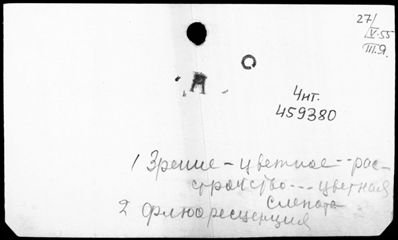 27/
V-55
III.Я.
Я
Чит.
459380
1 Зрение - цветное -- рас-
стройство --- цветная
слепота
2 флюоресценция